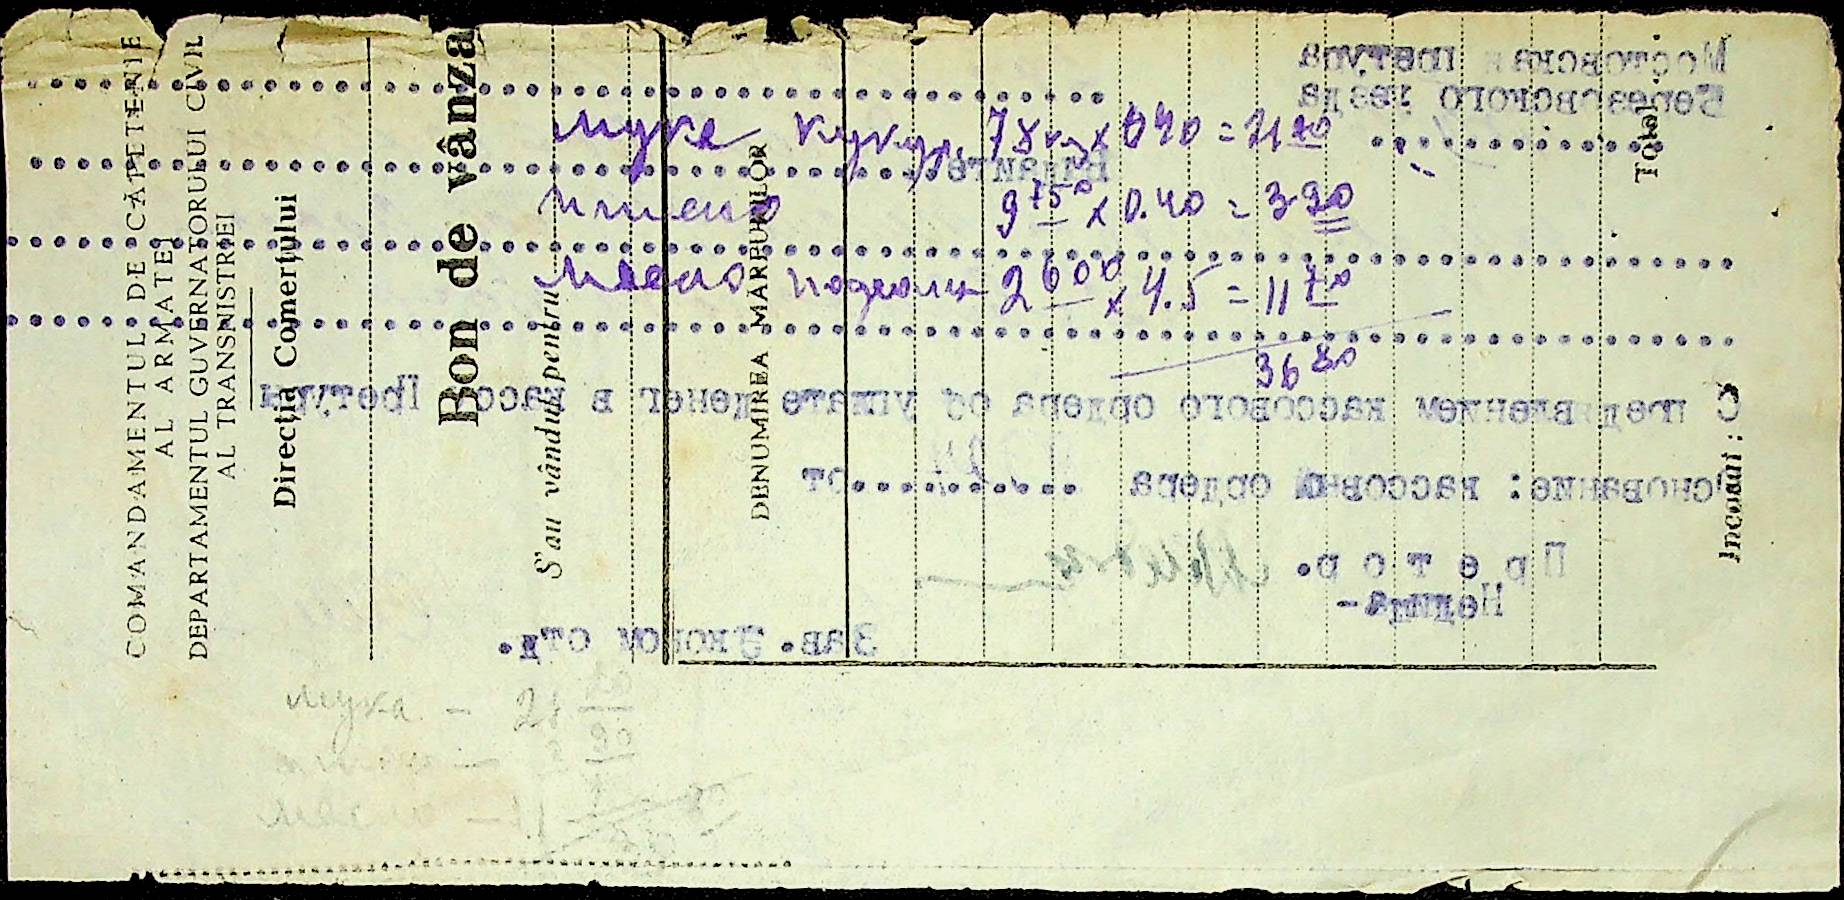 COMANDAMENTUL DE CĂPETENIE
AL ARMATEI
DEPARTAMENTUL GUVERNATORULUI CIVIL
AL TRANSNISTRIEI
Direcția Comerțului
Bon de vânza
S'au vândut pentru
DENUMIREA MĂRFURILOR
Total
Incasat :
Мука кукур. 78 кг x 040 = 31 20
Пшено 9 750 x 0.40 = 3 90
Масло подсолн 2 600 x 4.5 = 11 70
36 80
Мостовская Претура
Березовского уезда
Выдайте
С предявлением кассового ордера об уплате денег в кассу Претуры
Основание: кассовый ордера ........от
Претор.
Зав. Эконом отд.
мука - 21 20